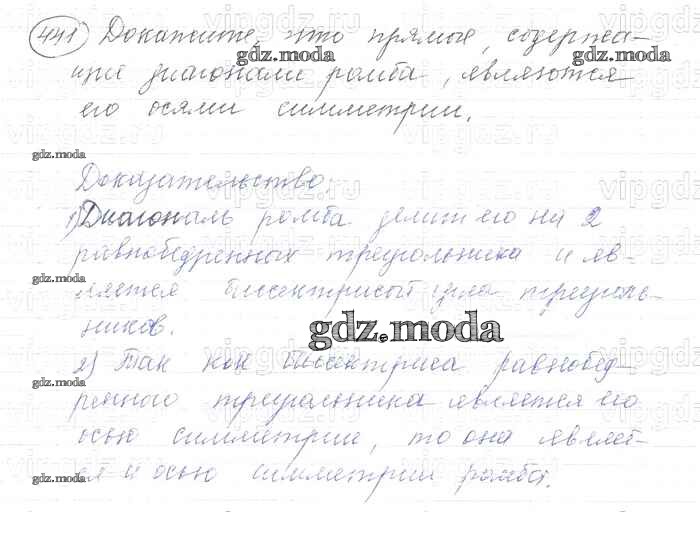 441 Докажите, что прямые, содержа-
щие диагонали ромба, являются
его осями симметрии.
Доказательство:
1) Диагональ ромба делит его на 2
равнобедренных треугольника и яв-
ляется биссектрисой угла треуголь-
ников.
2) Так как биссектриса равнобед-
ренного треугольника является его
осью симметрии, то она являет-
ся и осью симметрии ромба.
gdz.moda
vipgdz.ru